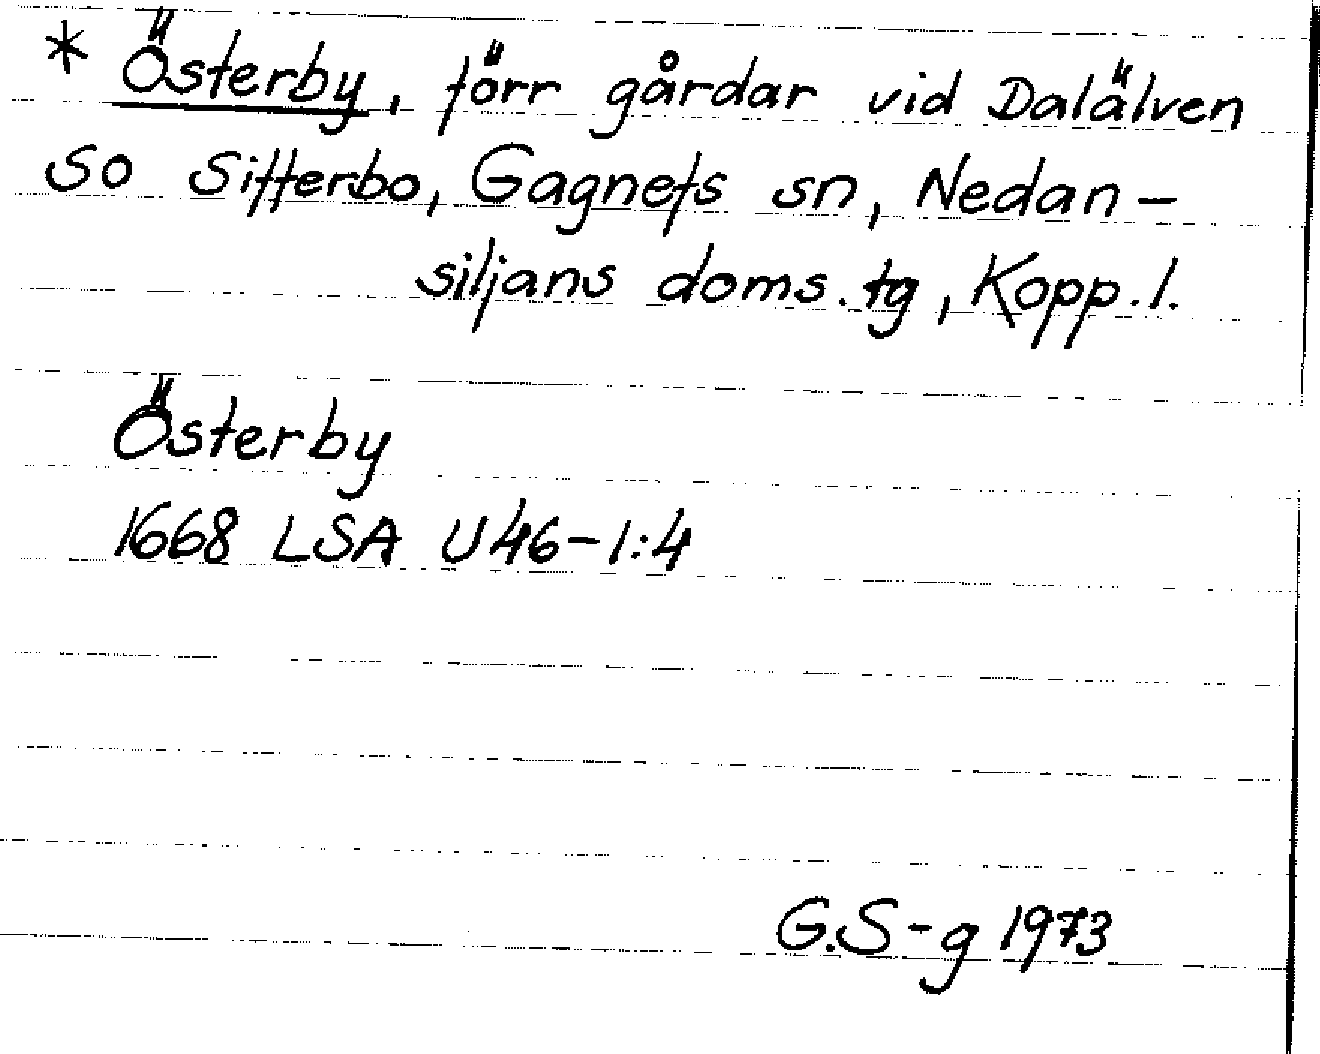 * Österby, förr gårdar vid Dalälven
SO Sifferbo, Gagnefs sn, Nedan-
siljans doms.tg, Kopp.l.
Österby
1668 LSA U46-1:4
G.S-g 1973